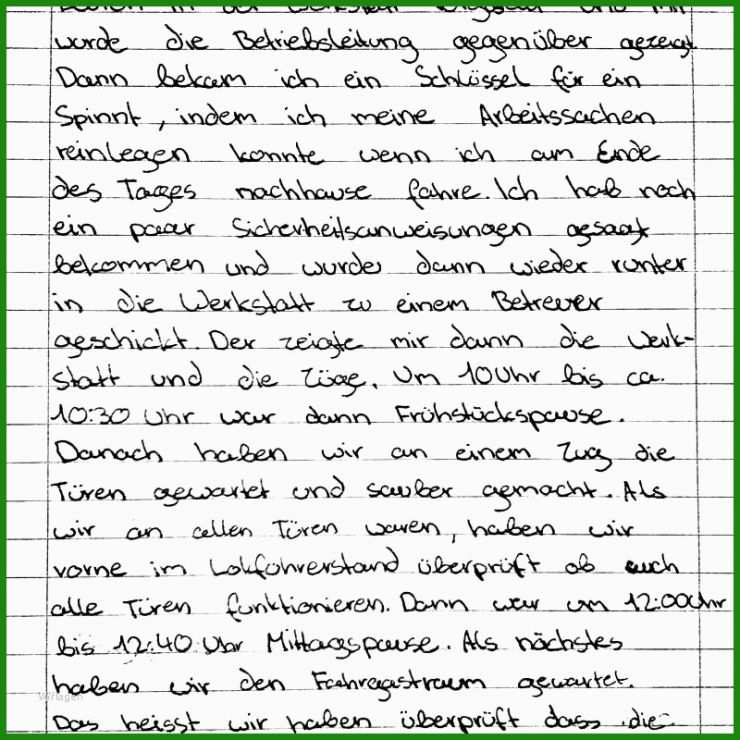 in der Werkstatt
wurde die Betriebsleitung gegenüber gezeigt.
Dann bekam ich ein Schlüssel für ein
Spinnt, indem ich meine Arbeitssachen
reinlegen konnte wenn ich am Ende
des Tages nachhause fahre. Ich hab noch
ein paar Sicherheitsanweisungen gesagt
bekommen und wurde dann wieder runter
in die Werkstatt zu einem Betreuer
geschickt. Der zeigte mir dann die Werk-
statt und die Züge. Um 10Uhr bis ca.
10:30 Uhr war dann Frühstückspause.
Danach haben wir an einem Zug die
Türen gewartet und sauber gemacht. Als
wir an allen Türen waren, haben wir
vorne im Lokführerstand überprüft ob auch
alle Türen funktionieren. Dann war um 12:00Uhr
bis 12:40 Uhr Mittagspause. Als nächstes
haben wir den Fahrgastraum gewartet.
Das heisst wir haben überprüft dass die